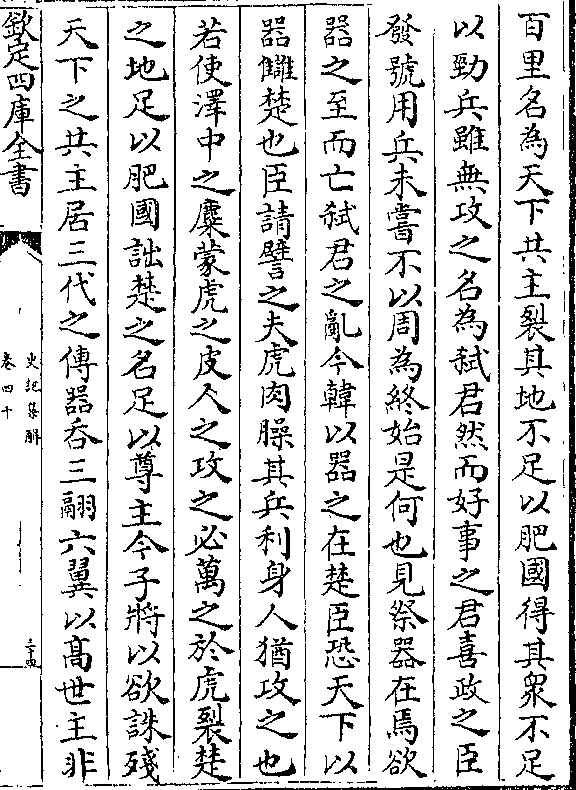 百里名為天下共主裂其地不足以肥國得其衆不足
以勁兵雖無攻之名為弑君然而好事之君喜政之臣
發號用兵未嘗不以周為終始是何也見祭器在焉欲
器之至而亡弑君之亂今韓以器之在楚臣恐天下以
器讎楚也臣請譬之夫虎肉臊其兵利身人猶攻之也
若使澤中之麋蒙虎之皮人之攻之必萬之於虎裂楚
之地足以肥國詘楚之名足以尊主今子將以欲誅殘
天下之共主居三代之傳器呑三翮六翼以髙世主非
欽定四庫全書
史記集解
卷四十
三十四